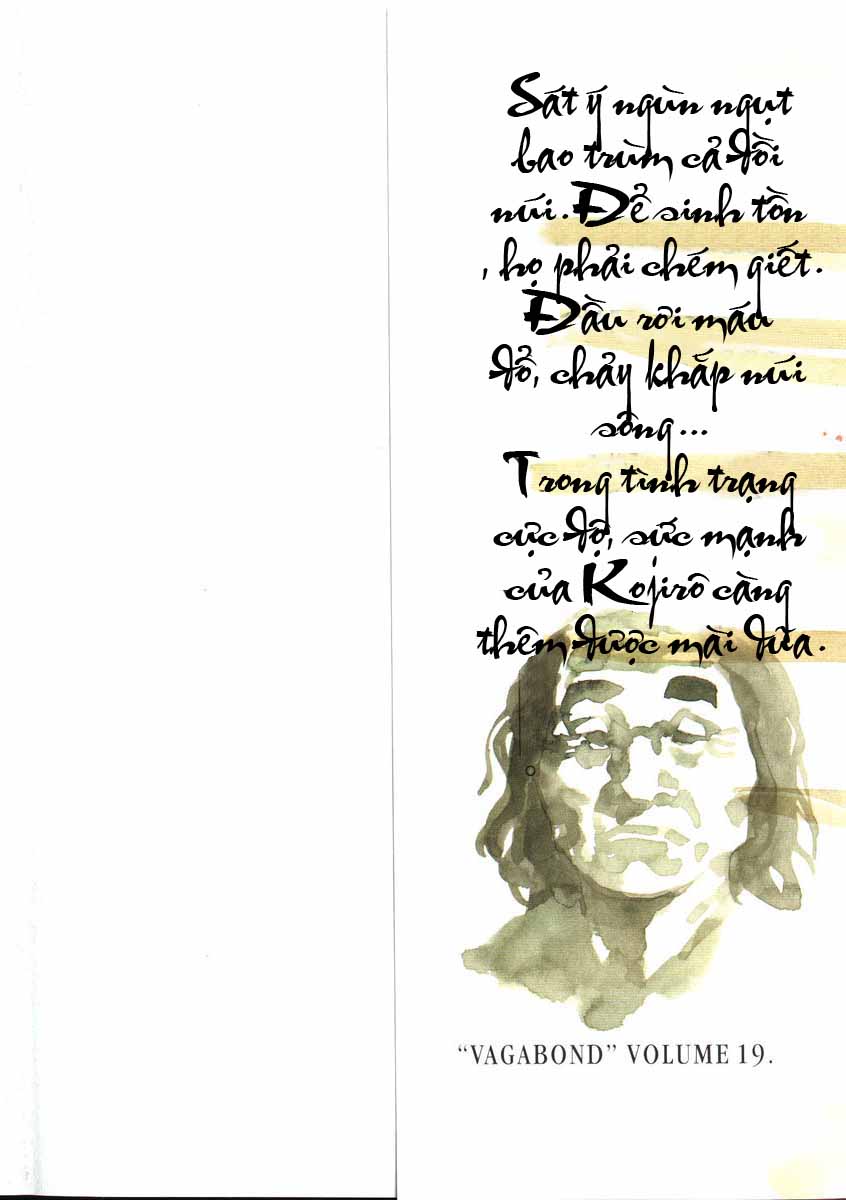 Sát ý ngùn ngụt
bao trùm cả đồi
núi. Để sinh tồn
, họ phải chém giết.
Đầu rơi máu
đổ, chảy khắp núi
sông...
Trong tình trạng
cực độ, sức mạnh
của Kojirô càng
thêm được mài dũa.
“VAGABOND” VOLUME 19.